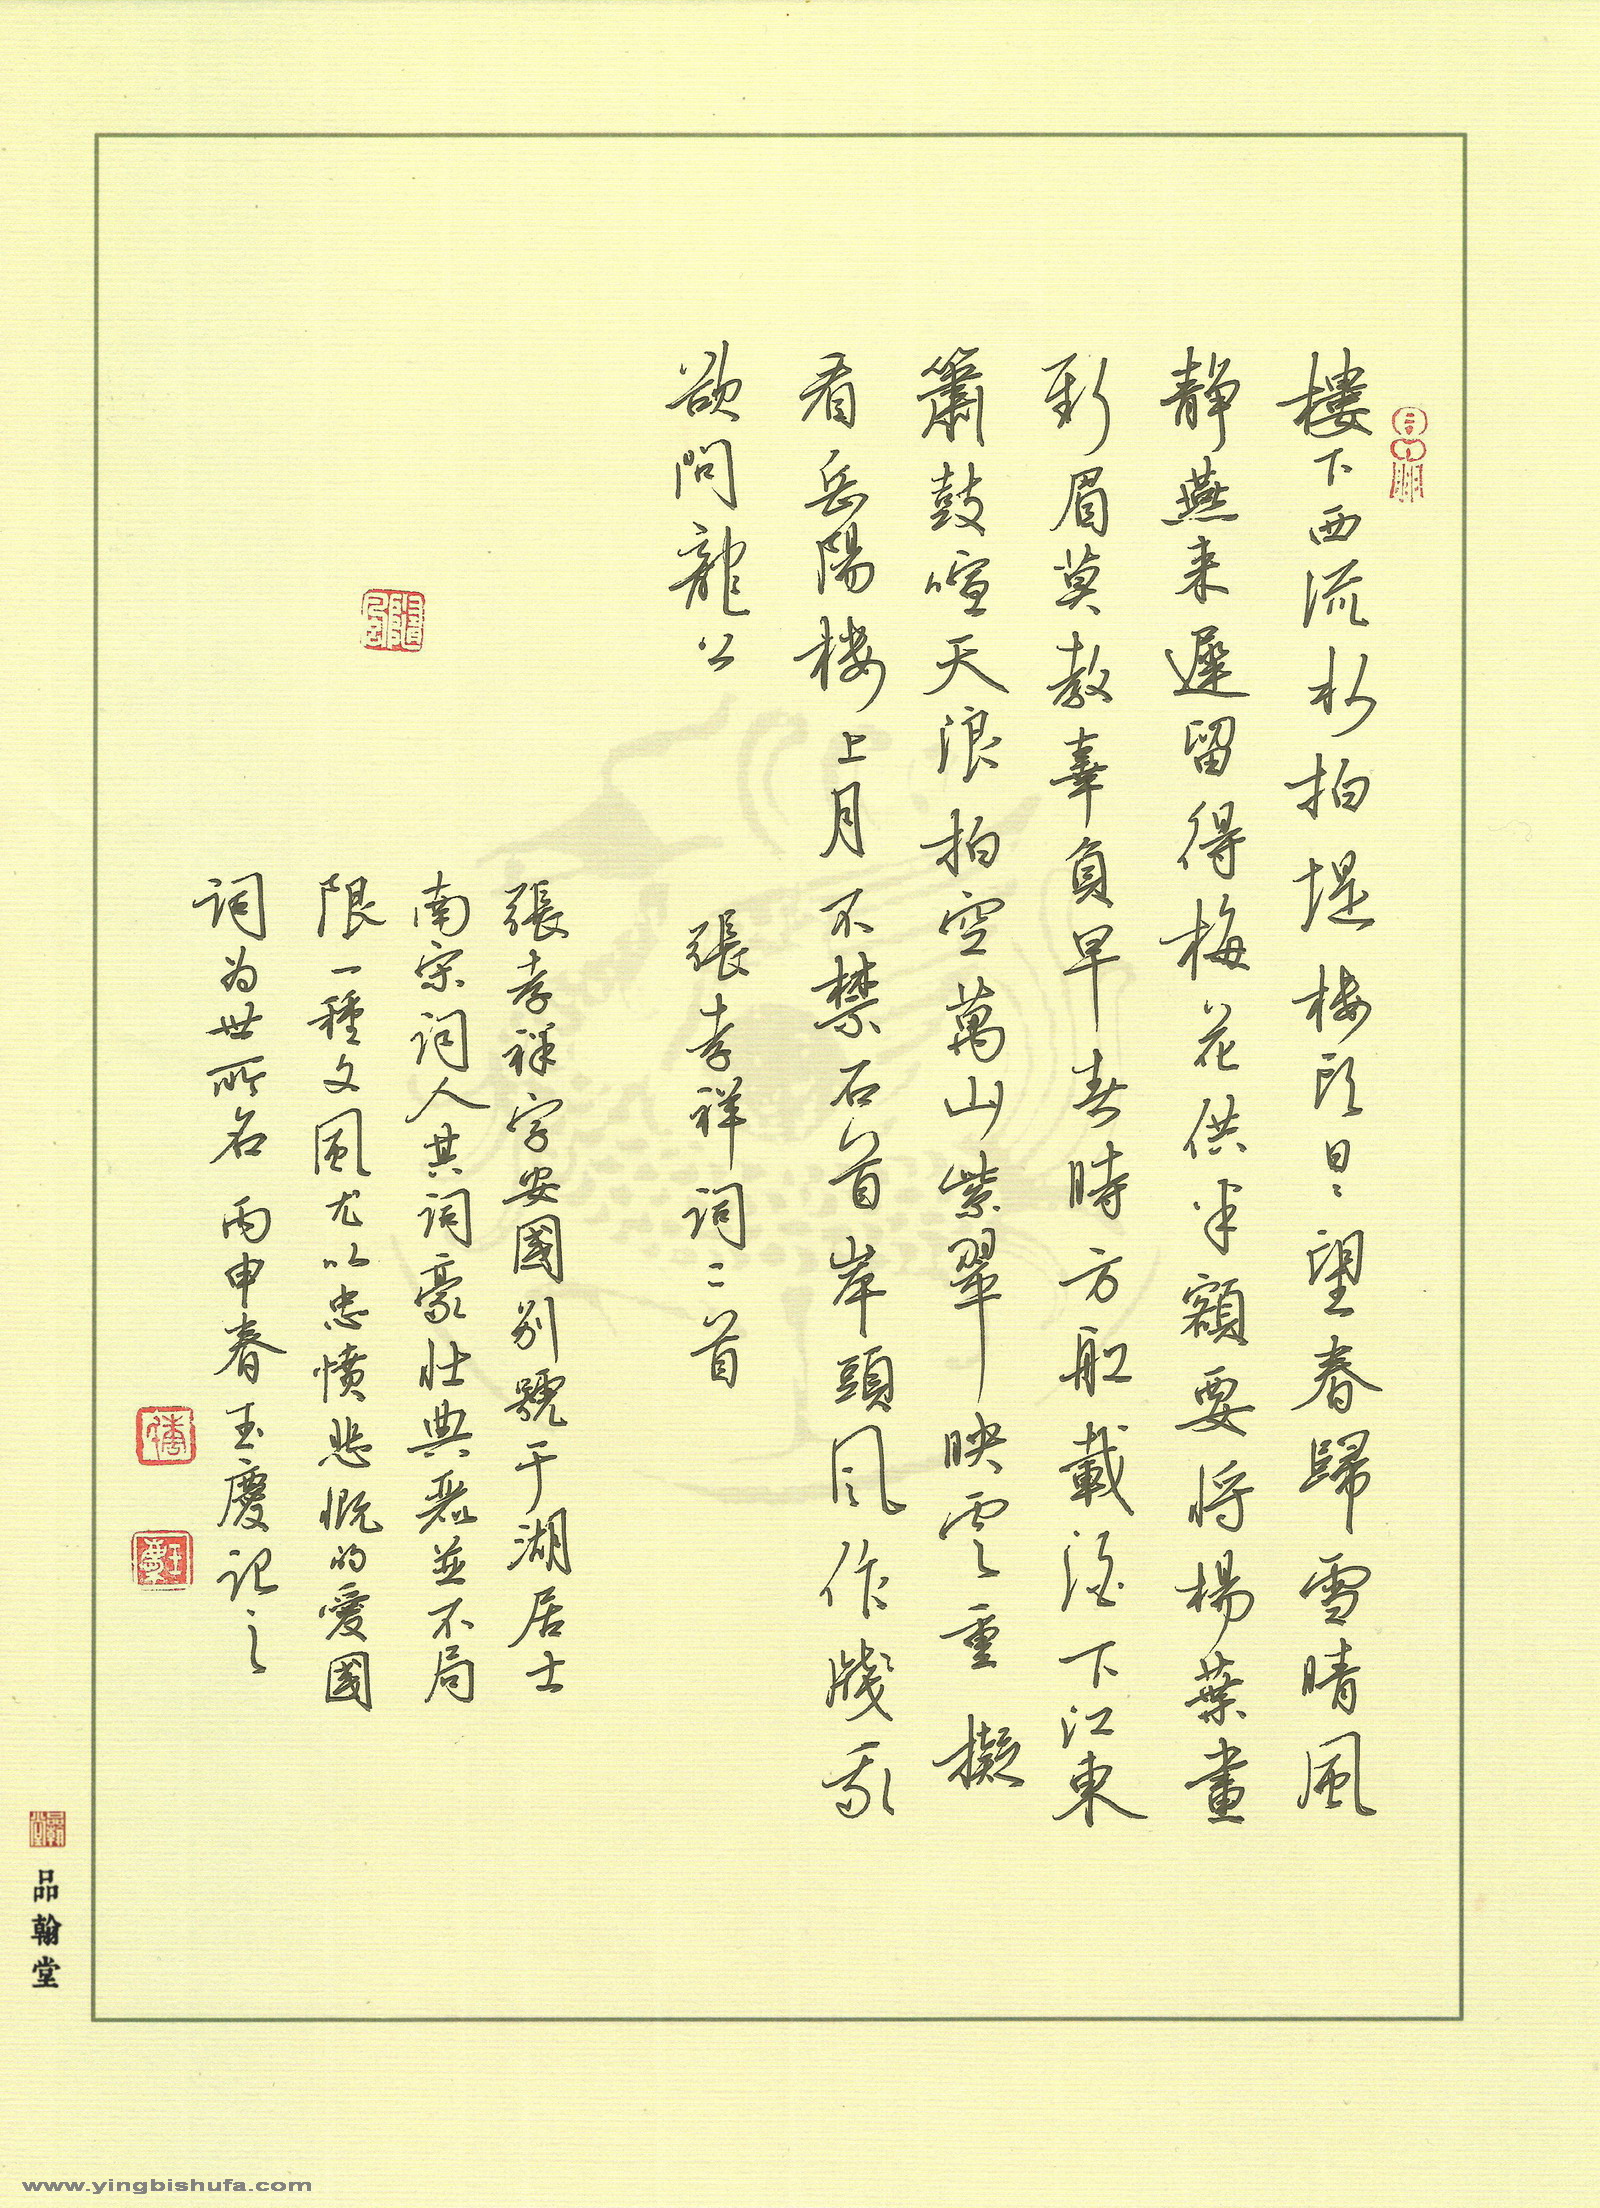 樓下西流水拍堤樓頭日日望春歸雪晴風
静燕来遲留得梅花供半額要将楊葉畫
新眉莫教辜負早春時方舡載酒下江東
簫鼓喧天浪拍空萬山紫翠映雲重擬
看岳陽樓上月不禁石首岸頭風作牋我
欲問龍公
張孝祥詞二首
張孝祥字安國别號于湖居士
南宗詞人其詞豪壮典麗並不局
限一種文風尤以忠憤悲慨的愛國
詞为世所名丙申春玉慶記之
品翰堂
www.yingbishufa.com